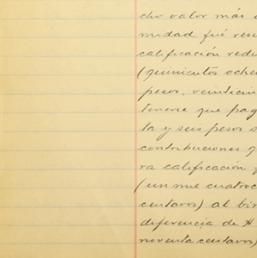 cho valor más
midad fué res
calificación redu
(quinientos oche
pesos, veinticin
tenerse que pag
ta y seis pesos s
contribuciones q
ra calificación q
(un mil cuatroc
centavos) al bi
diferencia de #
noventa centavos)